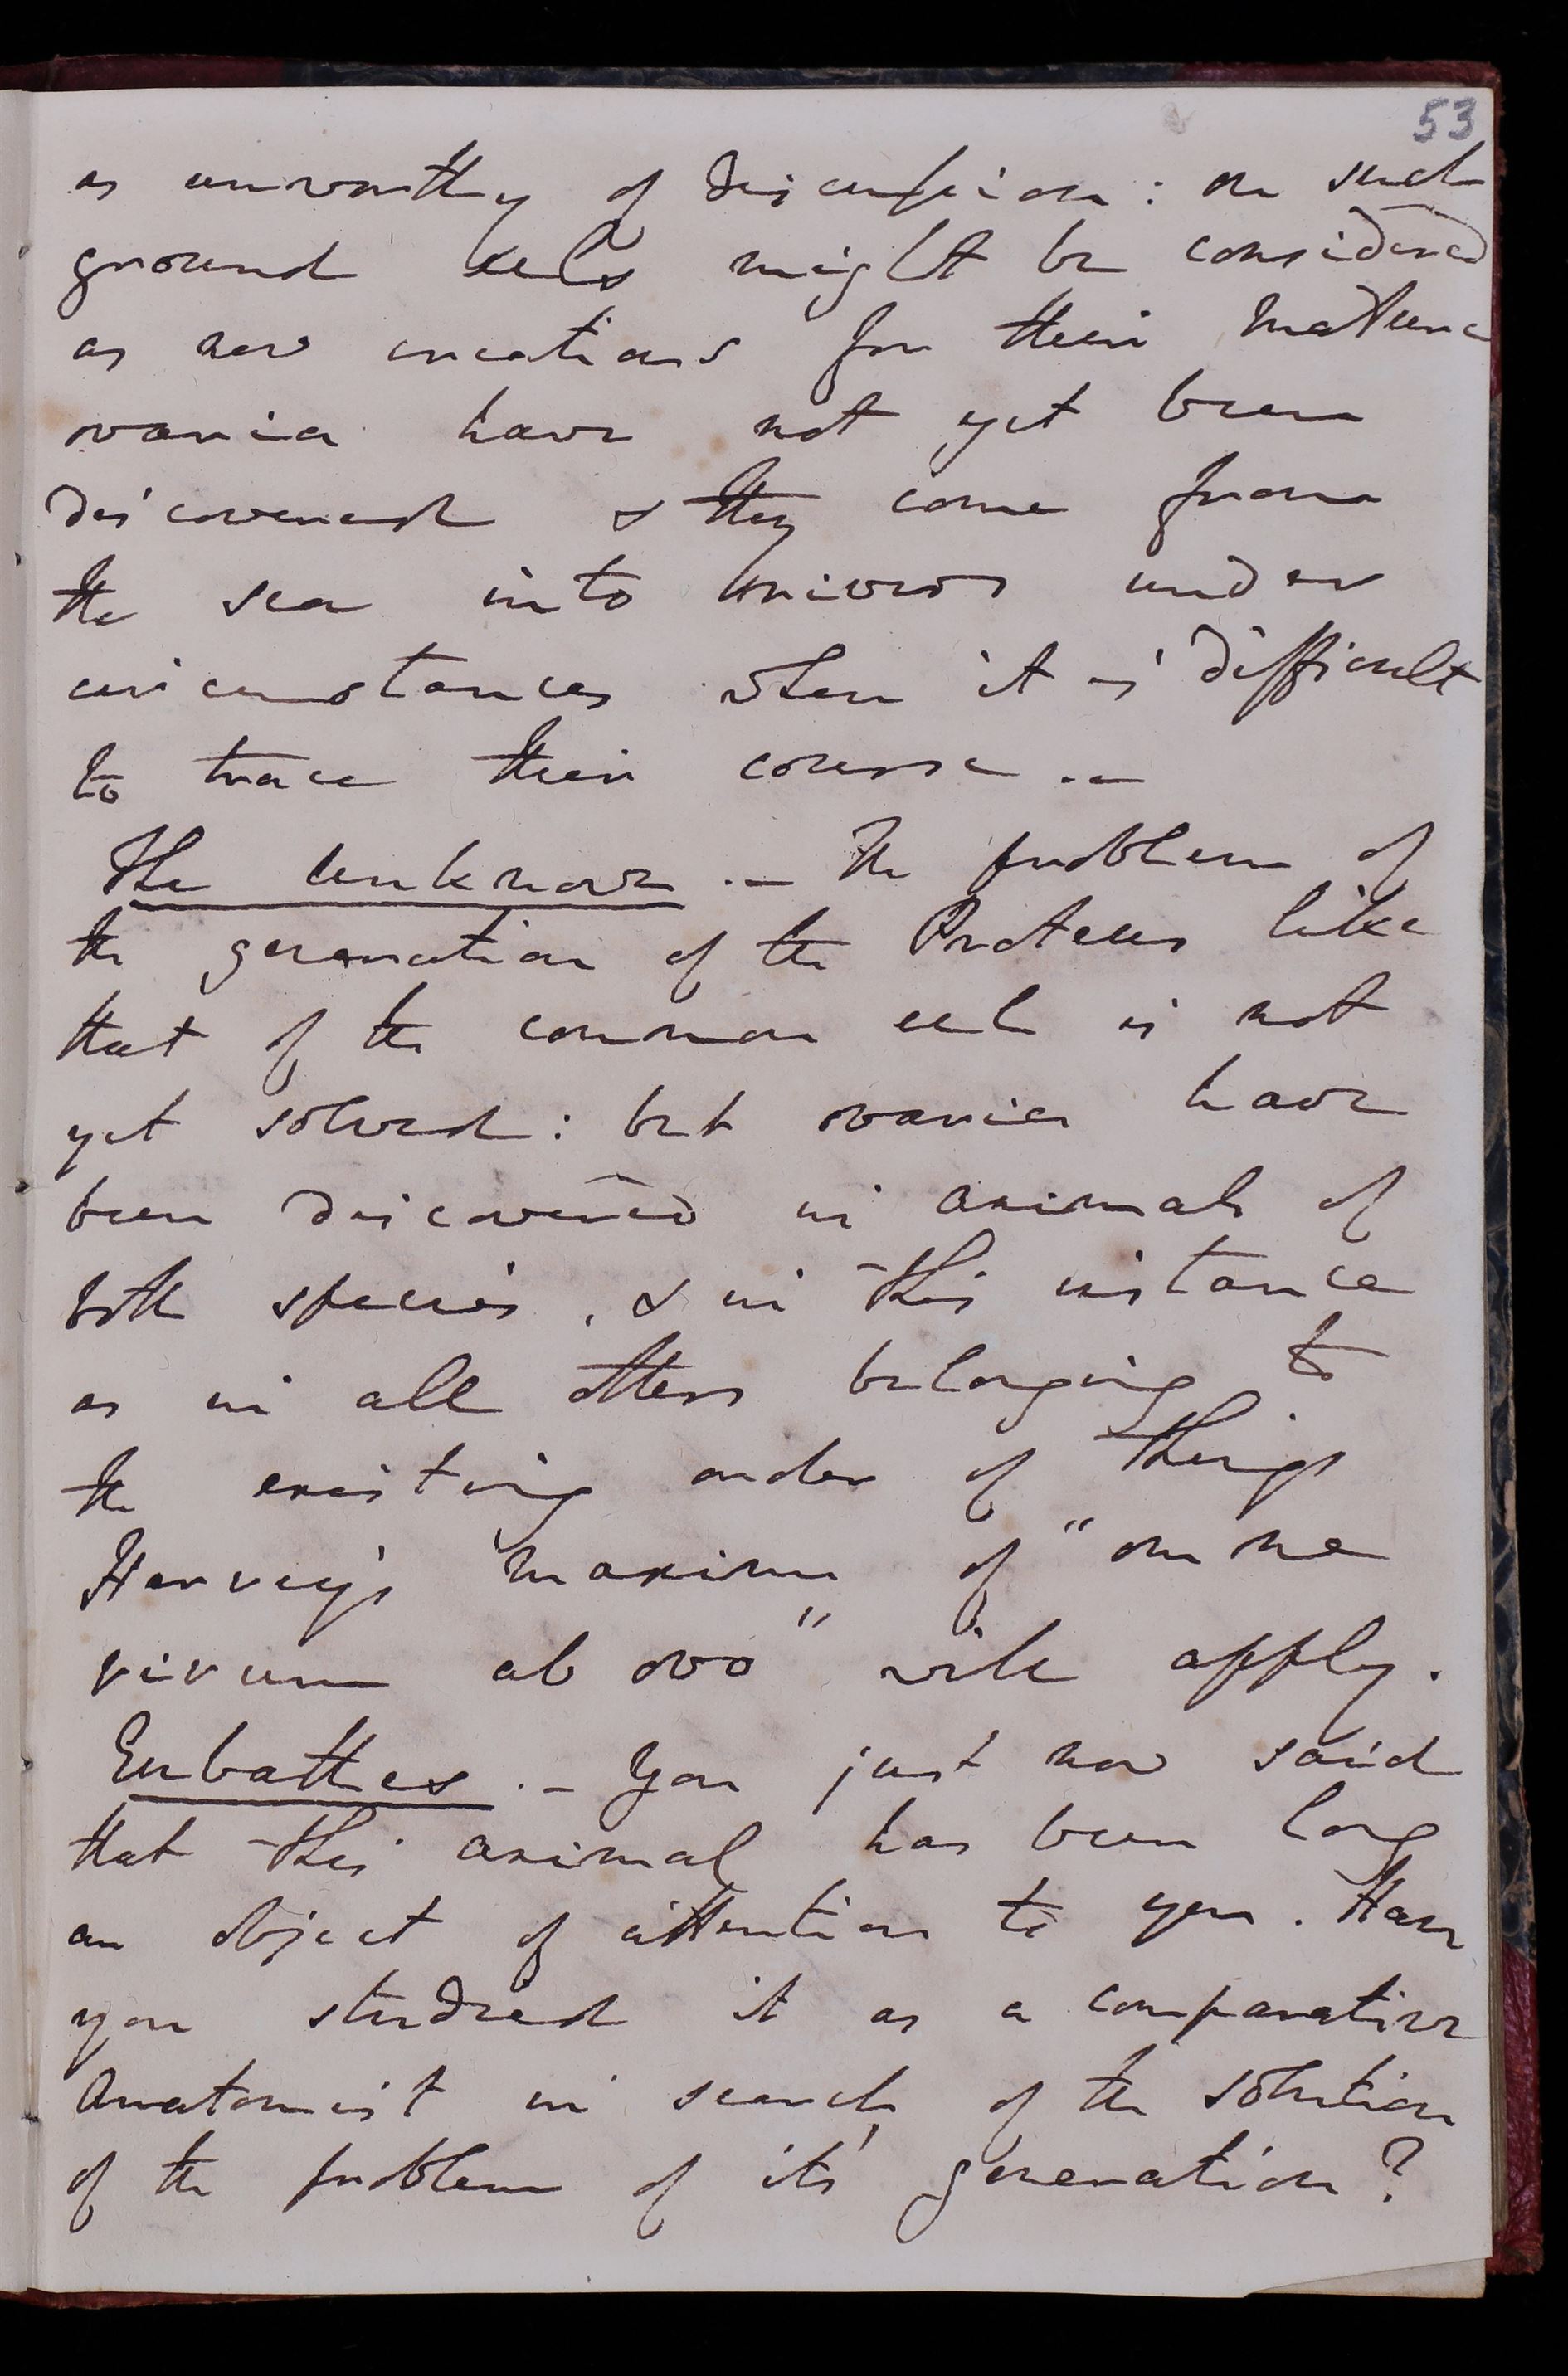 53
as unworthy of discussion: on such
ground eels might be considered
as new creations for their mature
ovaria have not yet been
discovered & they come from
the sea into rivers under
circumstances when it is difficult
to trace their course .—
The Unknown .— The problem of
the generation of the Proteus like
that of the common eel is not
yet solved: but ovaries have
been discovered in animals of
both species, & in this instance
as in all others belonging to
the existing order of things
Harvey's maxim of "omne
vivum ab ovo" will apply.
Eubathes .— You just now said
that this animal has been long
an object of attention to you. Have
you studied it as a comparative
Anatomist in search of the solution
of the problem of it's generation?